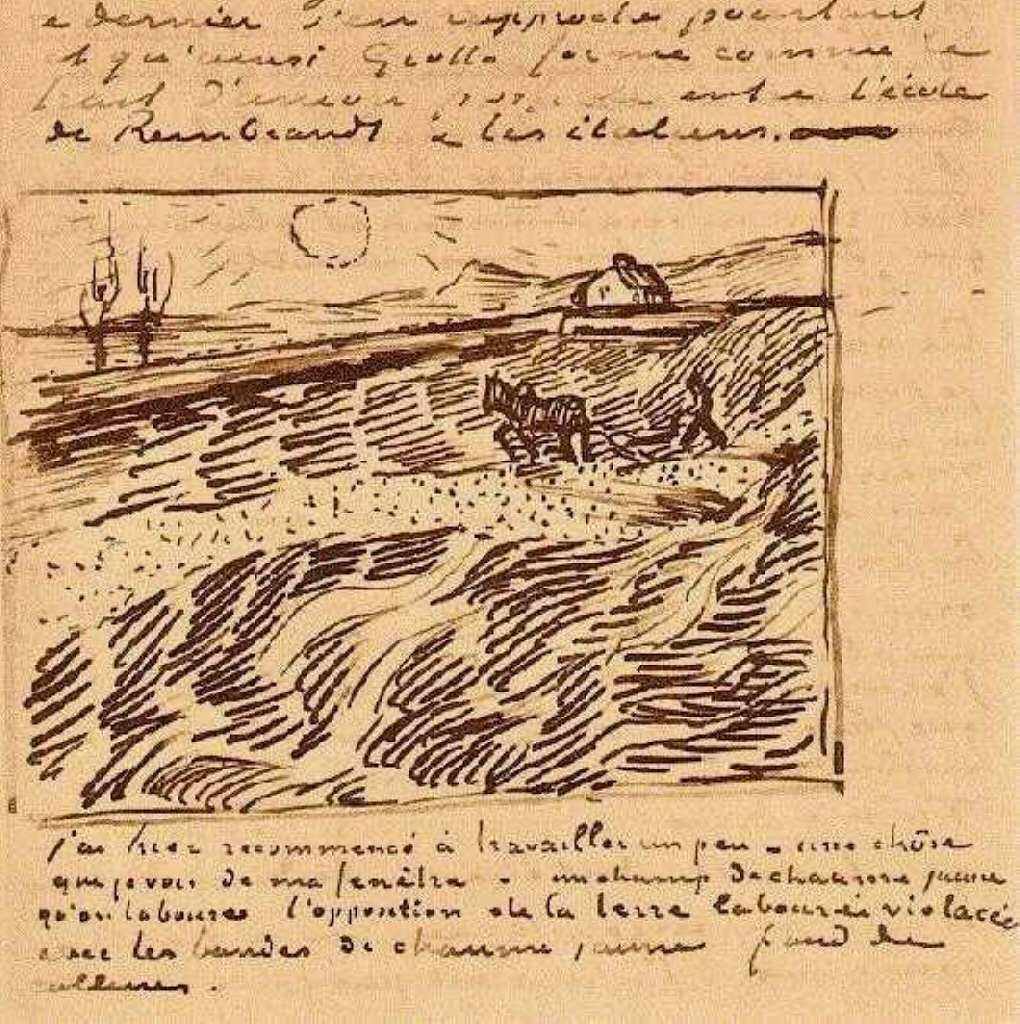 dernier s'en approche pourtant
et qu'ainsi Giotto forme comme le
trait d'union entre l'école
de Rembrandt à les italiens.
J'ai hier recommencé à travailler un peu – une chôse
que je vois de ma fenêtre – un champ de chaume jaune
qu'on laboure l'opposition de la terre labourée violacée
avec les bandes de chaume jaune fond de
collines.